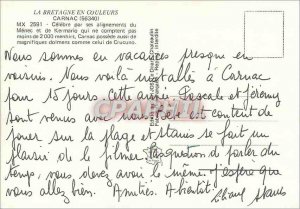 LA BRETAGNE EN COULEURS
CARNAC (56340)
MX 2591 - Célèbre par ses alignements du
Ménec et de Kermario qui ne comptent pas
moins de 2000 menhirs, Carnac possède aussi de
magnifiques dolmens comme celui de Crucuno.
Nous sommes en vacances presque en
voisins. Nous voilà installés à Carnac
pour 15 jours. Cette année Pascale et Jérémy
sont venus avec nous. est content de
jouer sur la plage et Stanis se fait un
plaisir de le filmer. Pas question de parler du
temps, vous devez avoir le même. J'espère que
vous allez bien. Amitiés. A bientôt.